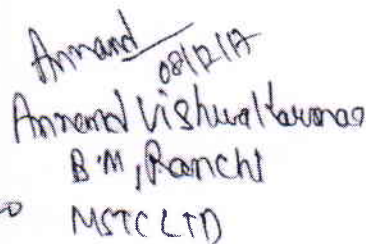 Annand
08/12/17
Annend Vishwalkarmao
B.M, Ranchi
MSTC LTD